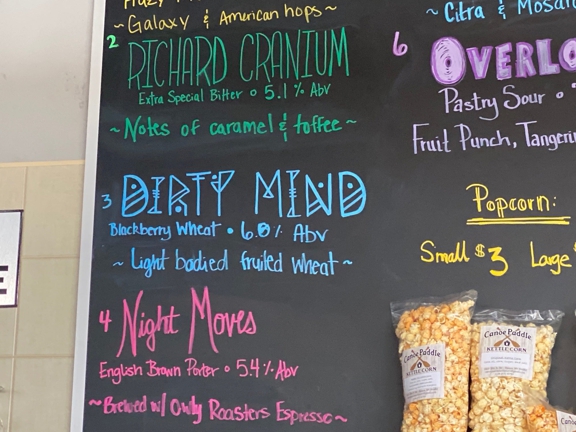 ~Galaxy & American hops~
2
RICHARD CRANIUM
Extra Special Bitter • 5.1% Abv
~Notes of caramel & toffee~
3 DIRTY MIND
Blackberry Wheat • 6.0% Abv
~Light bodied fruited wheat~
4 Night Moves
English Brown Porter • 5.4% Abv
~Brewed w/ Owly Roasters Espresso~
~Citra &
6
OVERLO
Pastry Sour •
Fruit Punch, Tangeri
Popcorn:
Small $3 Large
Canoe Paddle
KETTLECORN
Canoe Paddle
KETTLE CORN
E